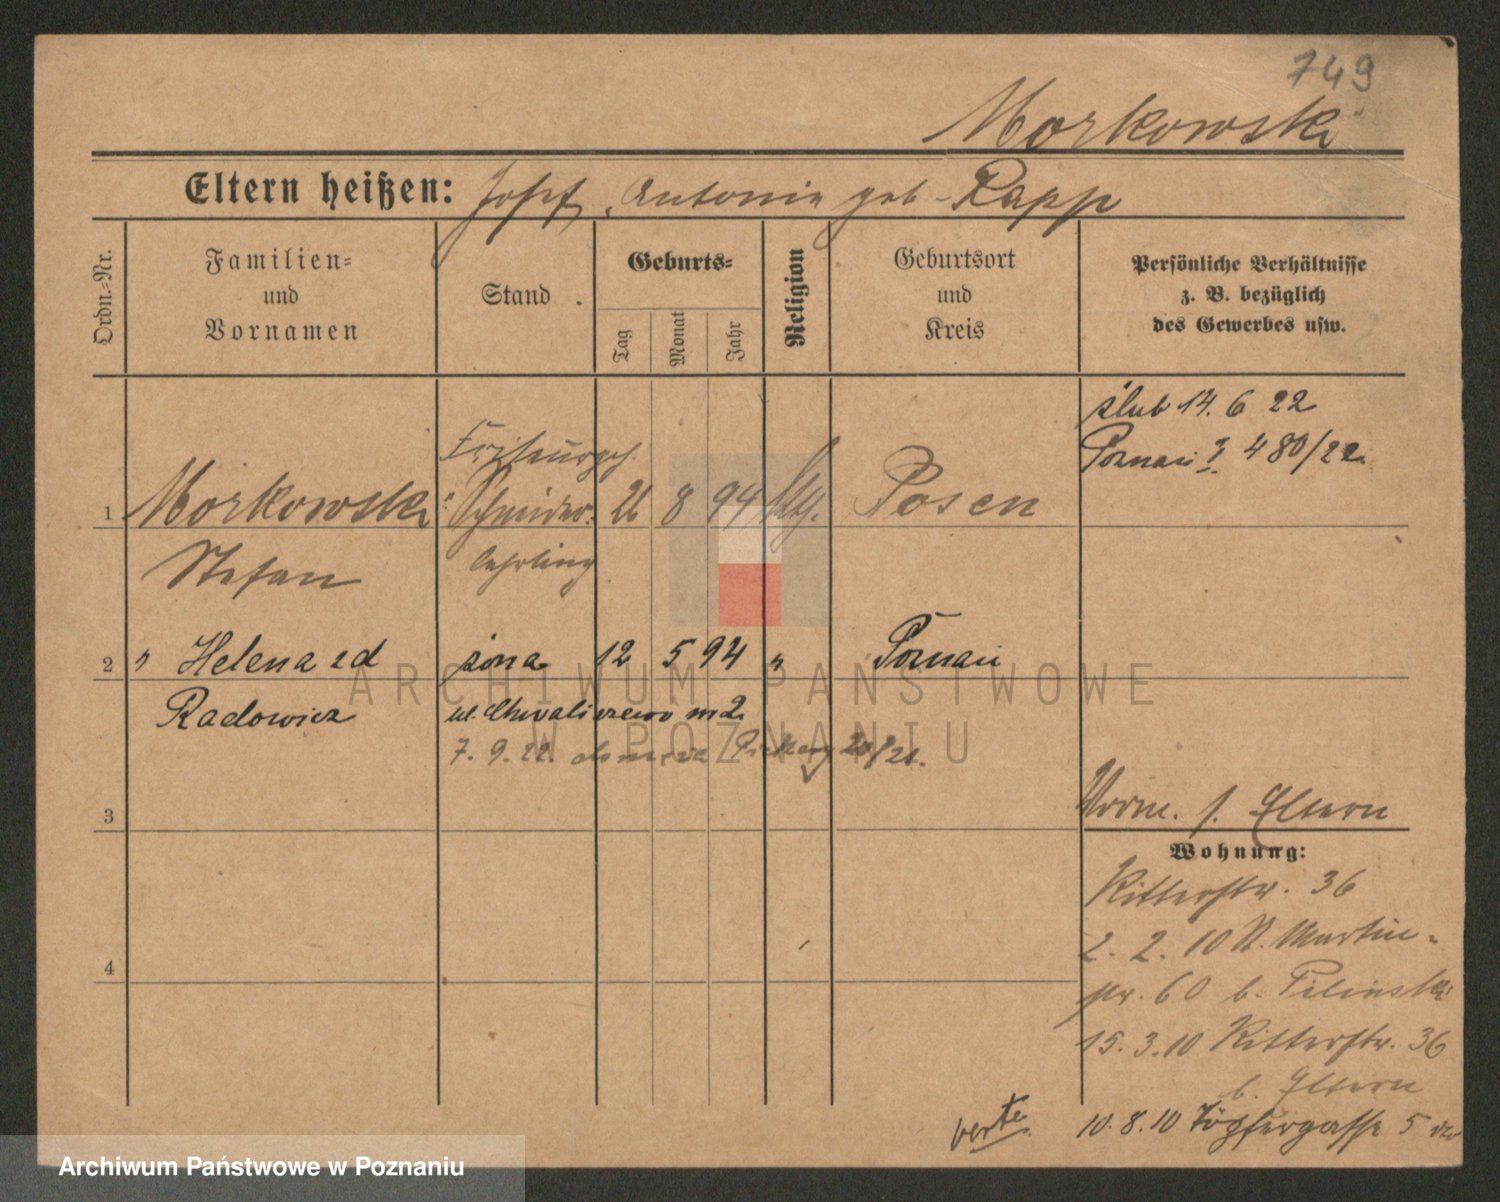 749
Morkowski
Eltern heißen: Josef, Antonie geb. Rapp
Ordn.=Nr.
Familien=
und
Vornamen
Stand
Geburts=
Tag
Monat
Jahr
Religion
Geburtsort
und
Kreis
Persönliche Verhältnisse
z. B. bezüglich
des Gewerbes usw.
ślub 14. 6 22
Poznań 480/22
Friseurgeh.
1 Morkowski Schneider- 26 8 94 Posen
Stefan lehrling
2 " Helena zd żona 12 5 94 " Poznań
Radowicz ul. Chwaliszewo m 2
7. 9. 22. 20/21.
3
Vorm. s. Eltern
Wohnung:
Ritterstr. 36
2. 2. 10 St. Martin-
str. 60 b. Pilinski
4
15. 3. 10 Ritterstr. 36
b. Eltern
verte 10. 8. 10 Töpfergasse 5
ARCHIWUM PAŃSTWOWE
W POZNANIU
Archiwum Państwowe w Poznaniu